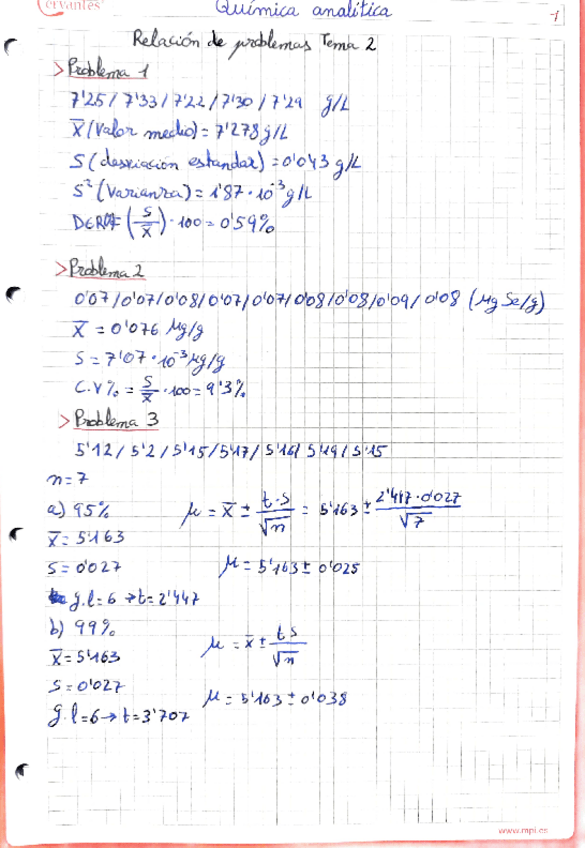 Cervantes
Química analítica
-1
Relación de problemas Tema 2
> Problema 1
7'25 / 7'33 / 7'22 / 7'30 / 7'29 g/L
X̅ (Valor medio) = 7'278 g/L
S (desviación estandar) = 0'043 g/L
S² (Varianza) = 1'87 · 10⁻³ g/L
(S/X̅) · 100 = 0'59%
> Problema 2
0'07 / 0'07 / 0'08 / 0'07 / 0'07 / 0'08 / 0'08 / 0'09 / 0'08 (μg Se/g)
X̅ = 0'076 μg/g
S = 7'07 · 10⁻³ μg/g
C.V % = S/X̅ · 100 = 9'3%
> Problema 3
5'12 / 5'2 / 5'15 / 5'17 / 5'16 / 5'19 / 5'15
n = 7
a) 95%
μ = X̅ ± t·S/√n = 5'163 ± 2'447·0'027/√7
X̅ = 5'163
S = 0'027
μ = 5'163 ± 0'025
g.l = 6 → t = 2'447
b) 99%
μ = X̅ ± t S/√n
X̅ = 5'163
S = 0'027
μ = 5'163 ± 0'038
g.l = 6 → t = 3'707
www.mpi.es